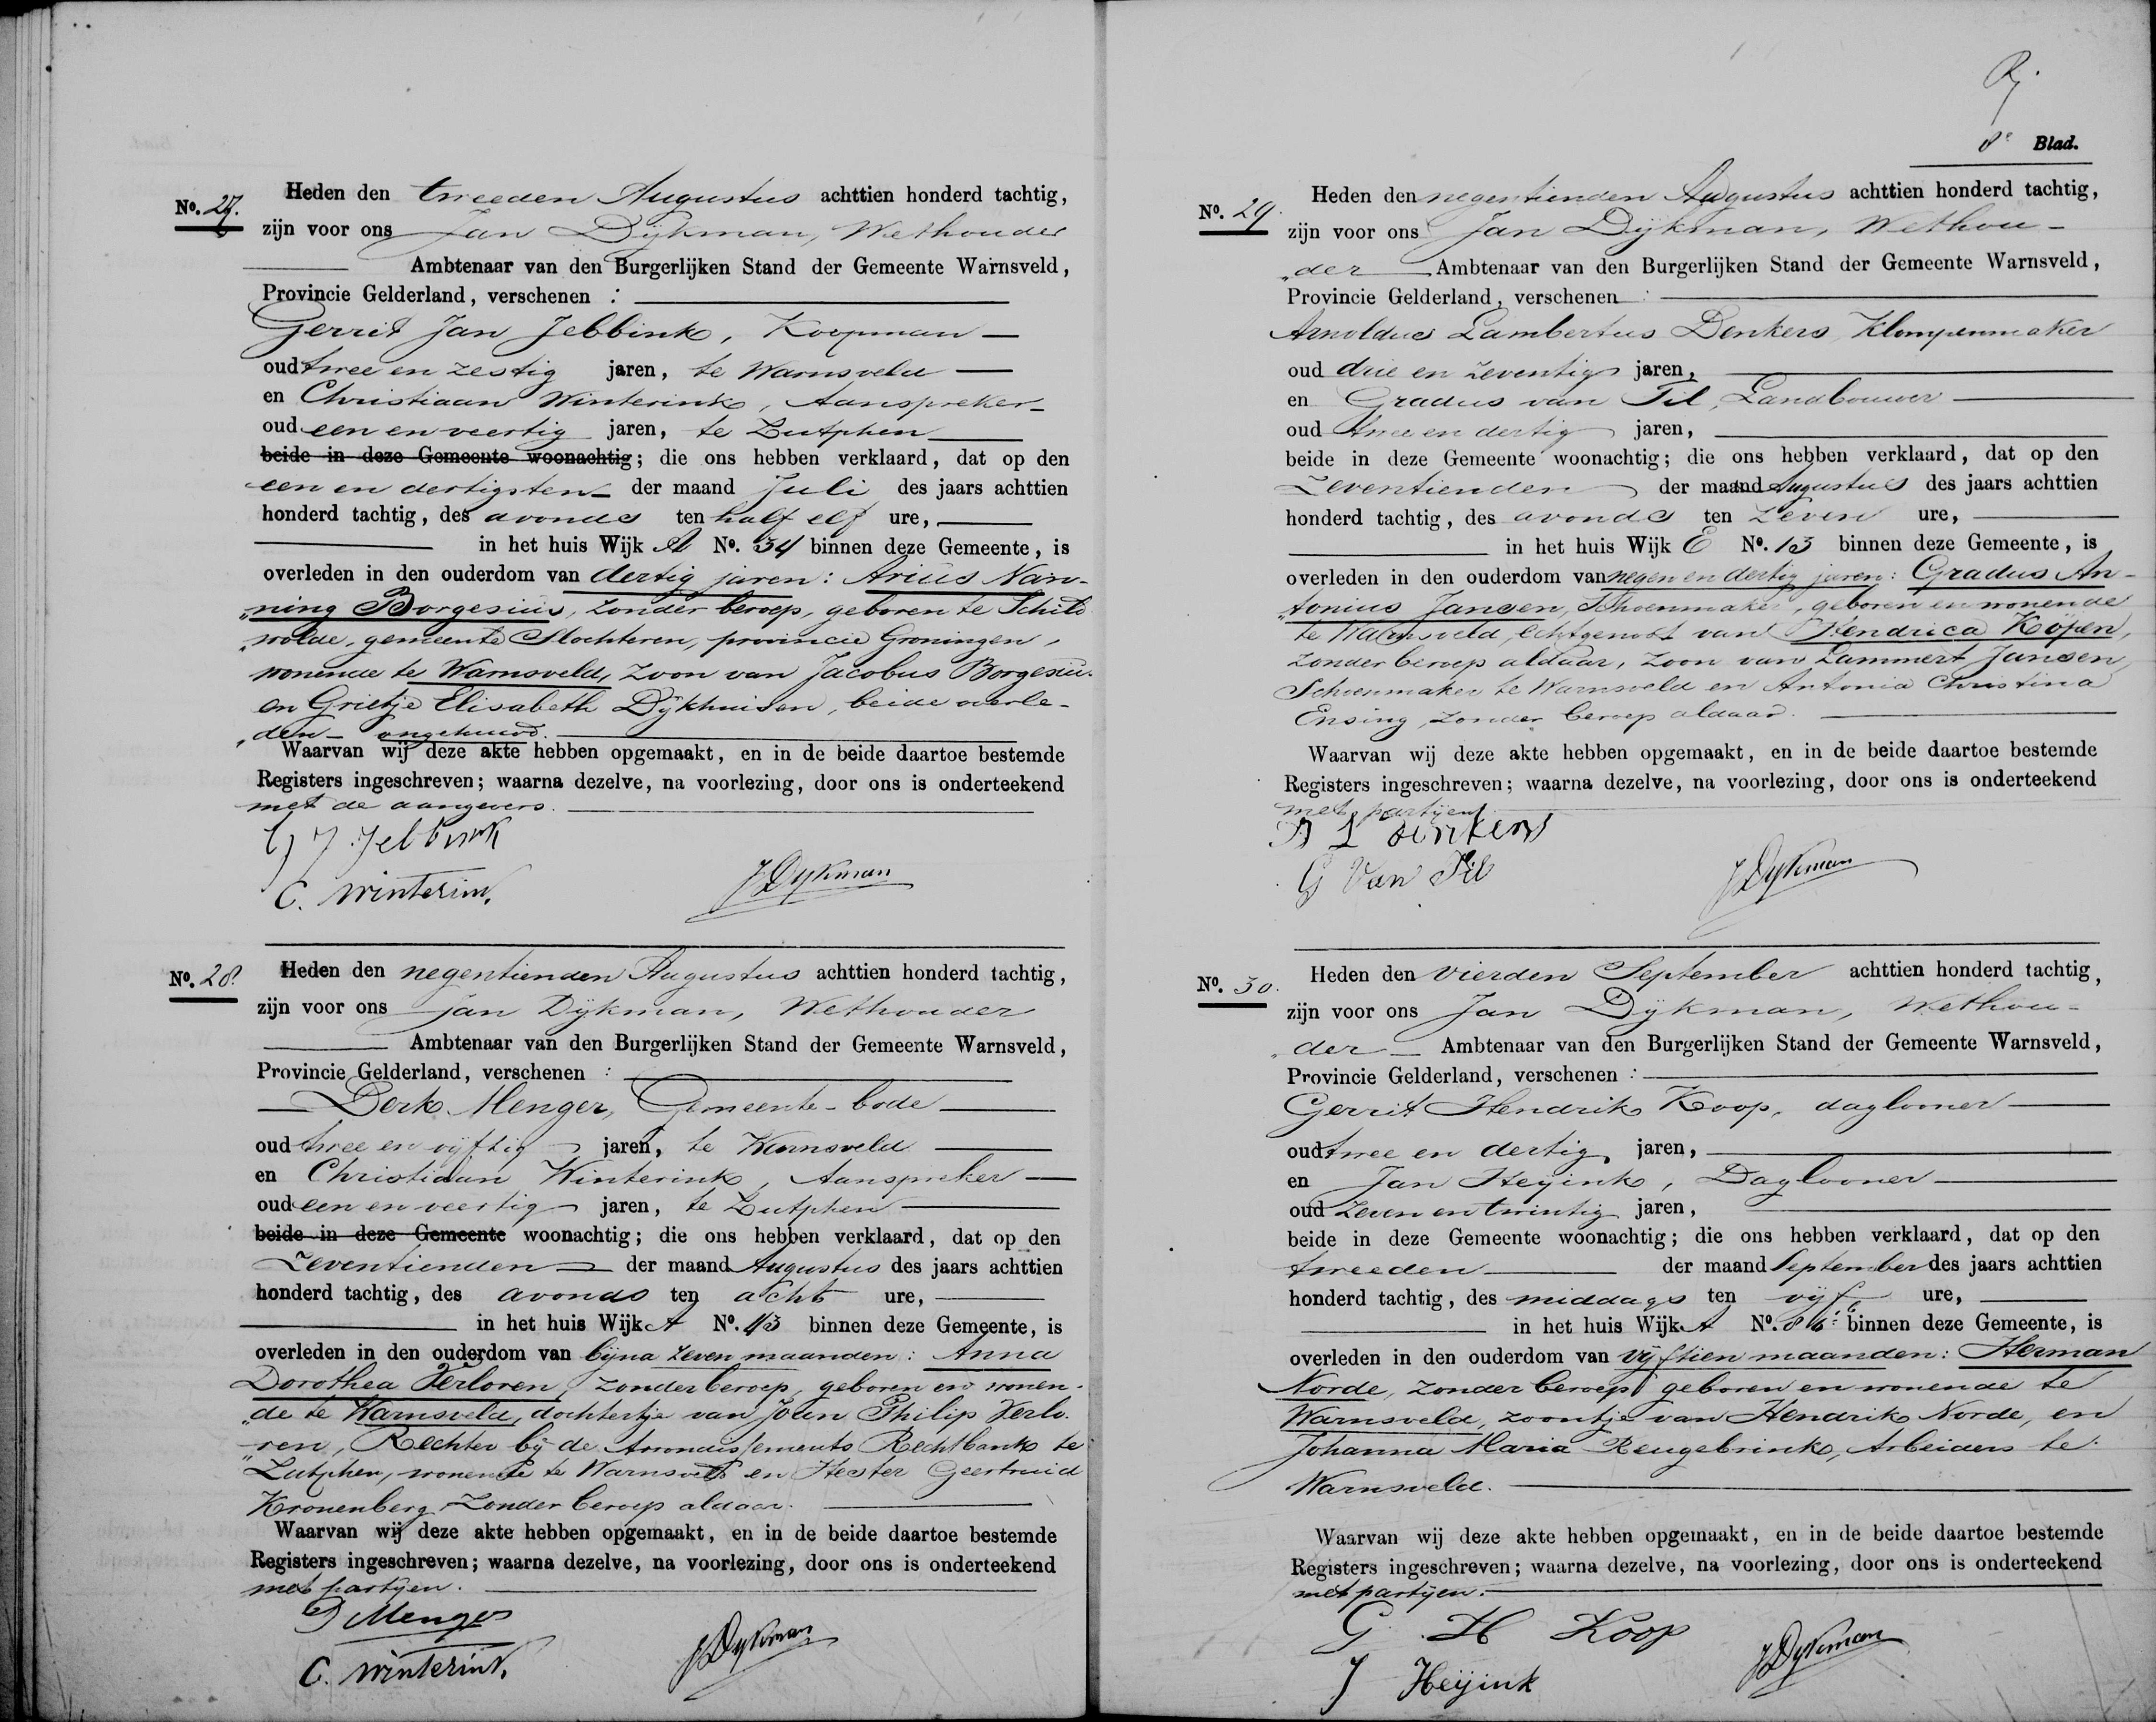 No. 27.
Heden den tweeden Augustus achttien honderd tachtig,
zijn voor ons Jan Dijkman, Wethouder
Ambtenaar van den Burgerlijken Stand der Gemeente Warnsveld,
Provincie Gelderland, verschenen :
Gerrit Jan Jebbink, Koopman
oud twee en zestig jaren, te Warnsveld
en Christiaan Winterink, Aanspreker
oud een en veertig jaren, te Zutphen
beide in deze Gemeente woonachtig; die ons hebben verklaard, dat op den
een en dertigsten der maand Juli des jaars achttien
honderd tachtig, des avonds ten half elf ure,
in het huis Wijk A No. 34 binnen deze Gemeente, is
overleden in den ouderdom van dertig jaren: Arius Nan-
„ning Borgesius, zonder beroep, geboren te Schild
„wolde, gemeente Slochteren, provincie Groningen,
wonende te Warnsveld, zoon van Jacobus Borgesius
en Grietje Elisabeth Dijkhuisen, beide overle-
„den - ongehuwd.
Waarvan wij deze akte hebben opgemaakt, en in de beide daartoe bestemde
Registers ingeschreven; waarna dezelve, na voorlezing, door ons is onderteekend
met de aangevers.
G J Jebbink
C. Winterink
J Dijkman
No. 28.
Heden den negentienden Augustus achttien honderd tachtig,
zijn voor ons Jan Dijkman, Wethouder
Ambtenaar van den Burgerlijken Stand der Gemeente Warnsveld,
Provincie Gelderland, verschenen :
Derk Menger, Gemeente-bode
oud twee en vijftig jaren, te Warnsveld
en Christiaan Winterink, Aanspreker
oud een en veertig jaren, te Zutphen
beide in deze Gemeente woonachtig; die ons hebben verklaard, dat op den
Zeventienden der maand Augustus des jaars achttien
honderd tachtig, des avonds ten acht ure,
in het huis Wijk A No. 43 binnen deze Gemeente, is
overleden in den ouderdom van bijna zeven maanden: Anna
Dorothea Verloren, zonder beroep, geboren en wonen-
„de te Warnsveld, dochtertje van Joan Philip Verlo-
„ren, Rechter bij de Arrondissements Rechtbank te
Zutphen, wonende te Warnsveld en Hester Geertruid
Kronenberg, zonder beroep aldaar.
Waarvan wij deze akte hebben opgemaakt, en in de beide daartoe bestemde
Registers ingeschreven; waarna dezelve, na voorlezing, door ons is onderteekend
met partijen.
D Menger
C. Winterink
J Dijkman
8e Blad.
No. 29.
Heden den negentienden Augustus achttien honderd tachtig,
zijn voor ons Jan Dijkman, Wethou-
„der Ambtenaar van den Burgerlijken Stand der Gemeente Warnsveld,
Provincie Gelderland, verschenen :
Arnoldus Lambertus Denkers, Klompenmaker
oud drie en zeventig jaren,
en Gradus van Til, Landbouwer
oud twee en dertig jaren,
beide in deze Gemeente woonachtig; die ons hebben verklaard, dat op den
Zeventienden der maand Augustus des jaars achttien
honderd tachtig, des avonds ten zeven ure,
in het huis Wijk E No. 13 binnen deze Gemeente, is
overleden in den ouderdom van negen en dertig jaren: Gradus An-
„tonius Jansen, Schoenmaker, geboren en wonende
te Warnsveld, echtgenoot van Hendrica Kopen,
zonder beroep aldaar, zoon van Lammert Jansen,
Schoenmaker te Warnsveld en Antonia Christina
Ensing, zonder beroep aldaar.
Waarvan wij deze akte hebben opgemaakt, en in de beide daartoe bestemde
Registers ingeschreven; waarna dezelve, na voorlezing, door ons is onderteekend
met partijen.
A L Denkers
G Van Til
J Dijkman
No. 30.
Heden den vierden September achttien honderd tachtig,
zijn voor ons Jan Dijkman, Wethou-
„der Ambtenaar van den Burgerlijken Stand der Gemeente Warnsveld,
Provincie Gelderland, verschenen :
Gerrit Hendrik Koop, daglooner
oud twee en dertig jaren,
en Jan Heijink, Daglooner
oud zeven en twintig jaren,
beide in deze Gemeente woonachtig; die ons hebben verklaard, dat op den
tweeden der maand September des jaars achttien
honderd tachtig, des middags ten vijf ure,
in het huis Wijk A No. binnen deze Gemeente, is
overleden in den ouderdom van vijftien maanden: Herman
Norde, zonder beroep, geboren en wonende te
Warnsveld, zoontje van Hendrik Norde, en
Johanna Maria Reugebrink, Arbeiders te
Warnsveld.
Waarvan wij deze akte hebben opgemaakt, en in de beide daartoe bestemde
Registers ingeschreven; waarna dezelve, na voorlezing, door ons is onderteekend
met partijen.
G H Koop
J Heijink
J Dijkman